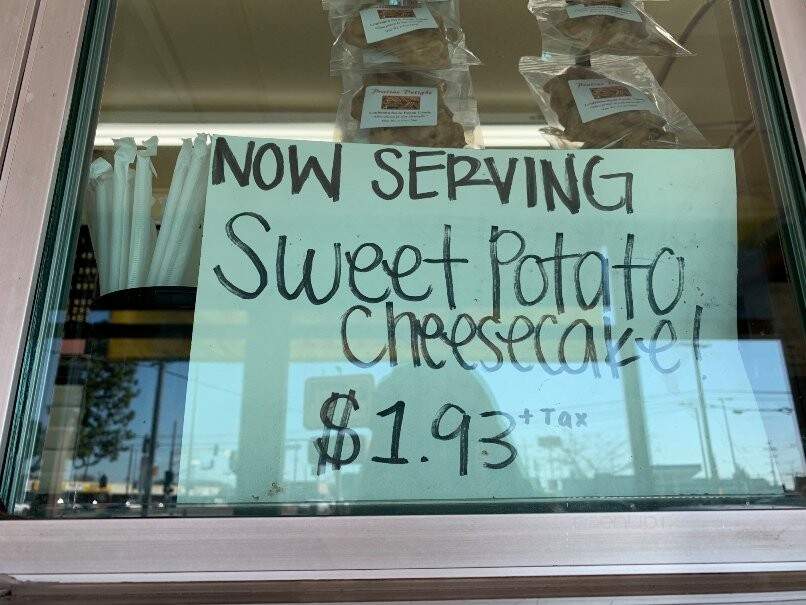 Praline Delight
NOW SERVING
Sweet Potato
Cheesecake!
$1.93 + Tax